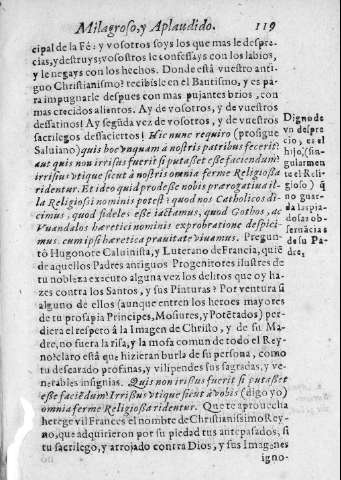 Milagroso, y Aplaudido. 119
cipal de la Fé: y vosotros soys los que mas le despre-
cias, y destruys; vosostros le confessays con los labios,
y le negays con los hechos. Donde està vuestro anti-
guo Christianismo? recibisle en el Bautismo, y es pa-
ra impugnarle despues con mas pujantes brios, con
mas crecidos alientos. Ay de vosotros, y de vuestros
dessatinos! Ay segũda vez de vosotros, y de vuestros
sacrilegos dessaciertos! Hic nunc requiro (prosigue
Salviano) quis hoc vnquam à nostris patribus fecerit?
aut quis non irrisus fuerit si putasset esse faciendum?
irrisus vtique sicut à nostris omnia ferme Religiossa
ridentur. Et ideo quid prodesse nobis prærogativa il-
la Religiossi nominis potest: quod nos Catholicos di-
cimus, quod fideles esse iactamus, quod Gothos, ac
Vuandalos hæretici nominis exprobratione despici-
mus. cum ipsi hæretica prauitate viuamus. Pregun-
tò Hugonote Calvinista, y Luterano de Francia, quiẽ
de aquellos Padres antiguos Progenitores ilustres de
tu nobleza executo alguna vez los delitos que oy ha-
zes contra los Santos, y sus Pinturas? Por ventura si
alguno de ellos (aunque entren los heroes mayores
de tu prosapia Principes, Mosiures, y Potẽtados) per-
diera el respeto à la Imagen de Christo, y de su Ma-
dre, no fuera la risa, y la mofa comun de todo el Rey-
no? claro està que hizieran burla de su persona, como
tu descarado profanas, y vilipendes sus sagradas, y ve-
nerables insignias. Quis non irrisus fuerit si putasset
esse faciẽdum? Irrisus vtique sicut à vobis (digo yo)
omnia ferme Religiossa ridentur. Que te aprovecha
herege vil Frances el nombre de Christianissimo Rey-
no, que adquirieron por su piedad tus antepasados, si
tu sacrilego, y arrojado contra Dios, y sus Imagenes
igno-
Digno de
vn despre
cio, es el
hijo, (sin-
gularmen
te el Reli-
gioso) q̃
no guar-
da las pia-
dosas ob-
servãcias
de su Pa-
dre.